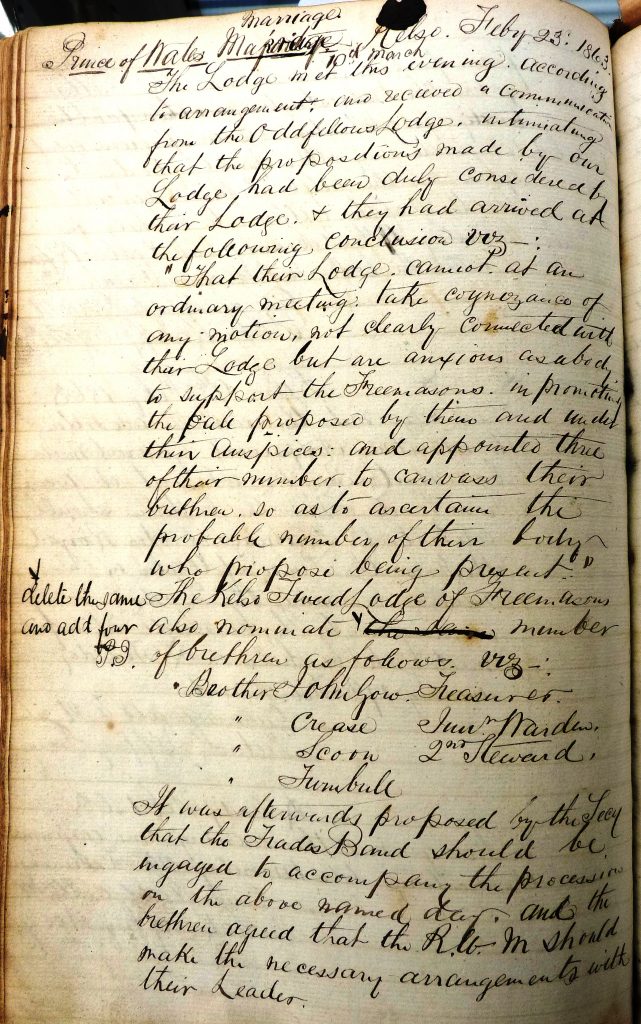 Marriage
Prince of Wales Kelso. Feby 23d 1863.
10th March
The Lodge met this evening. according
to arrangement. and recieved a communication
from the Oddfellows Lodge. intimating
that the propositions made by our
Lodge had been duly considered by
their Lodge. & they had arrived at
the following conclusion viz —:
"That their Lodge. cannot. at an
ordinary meeting. take cognezance of
any motion, not clearly connected with
their Lodge but are anxious as a body
to support the Freemasons. in promoting
the Ball proposed by them and under
their auspices: and appointed three
of their number. to canvass their
brethren. so as to ascertain the
probable number, of their body
who propose being present."
delete the same
and add four
The Kelso Tweed Lodge of Freemasons
also nominate the same number
of brethren as follows. viz —:
Brother John Gow. Treasurer.
" Crease Junr Warden.
" Scoon 2nd Steward.
" Turnbull
It was afterwards proposed by the Secy
that the Trades Band should be
engaged to accompany the procession
on the above named day. and the
brethren agreed that the R.W. M should
make the necessary arrangements with
their Leader.